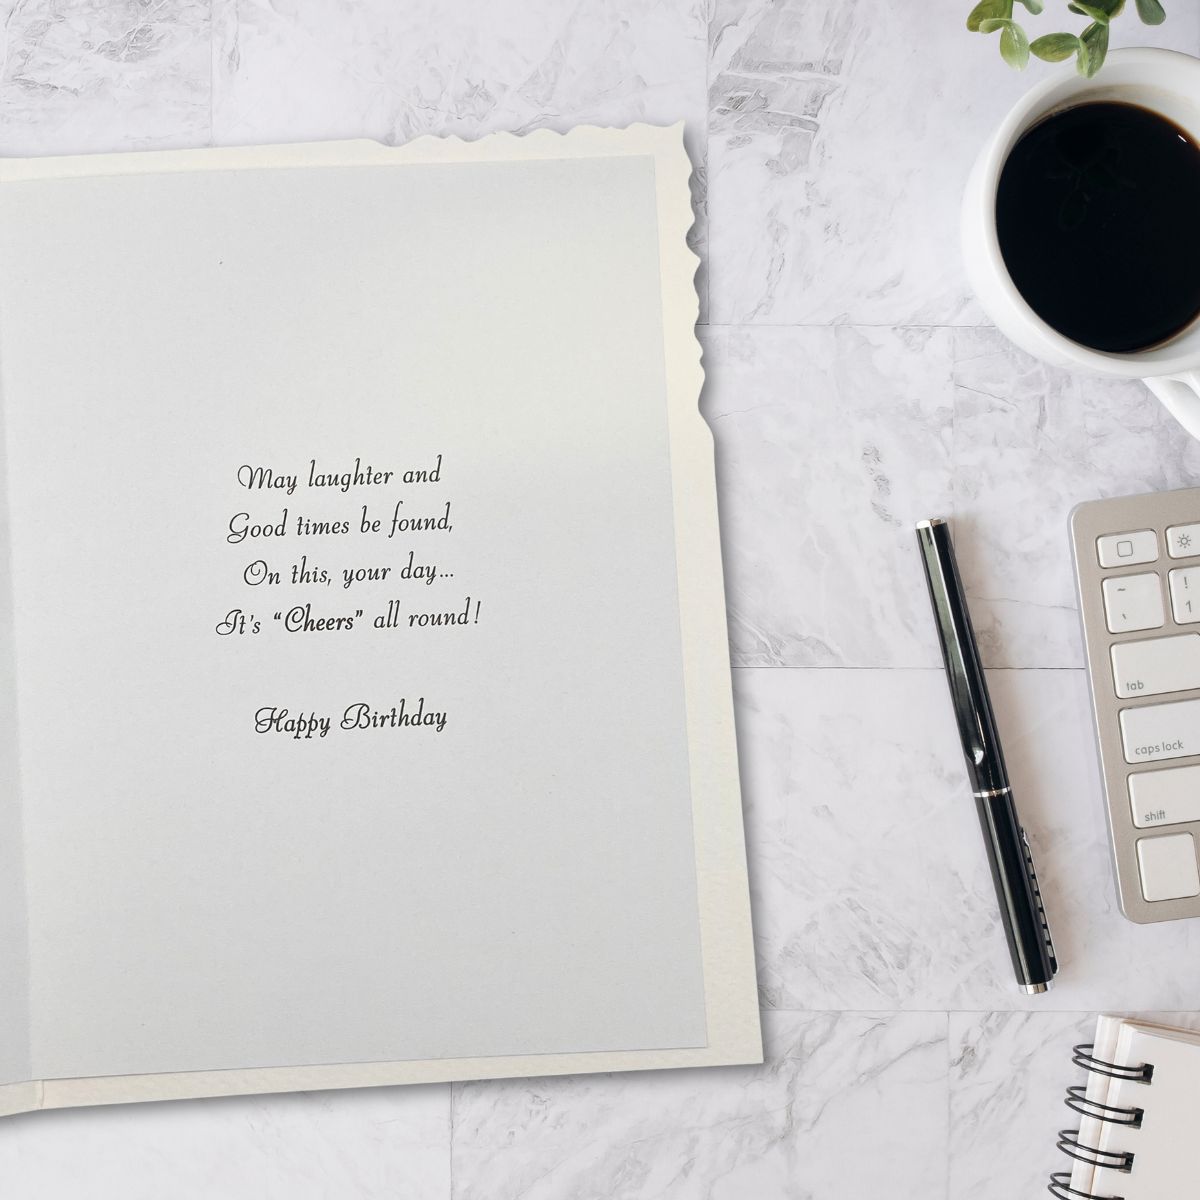 May laughter and
Good times be found,
On this, your day...
It's “Cheers” all round!
Happy Birthday
~
`
!
1
tab
caps lock
shift